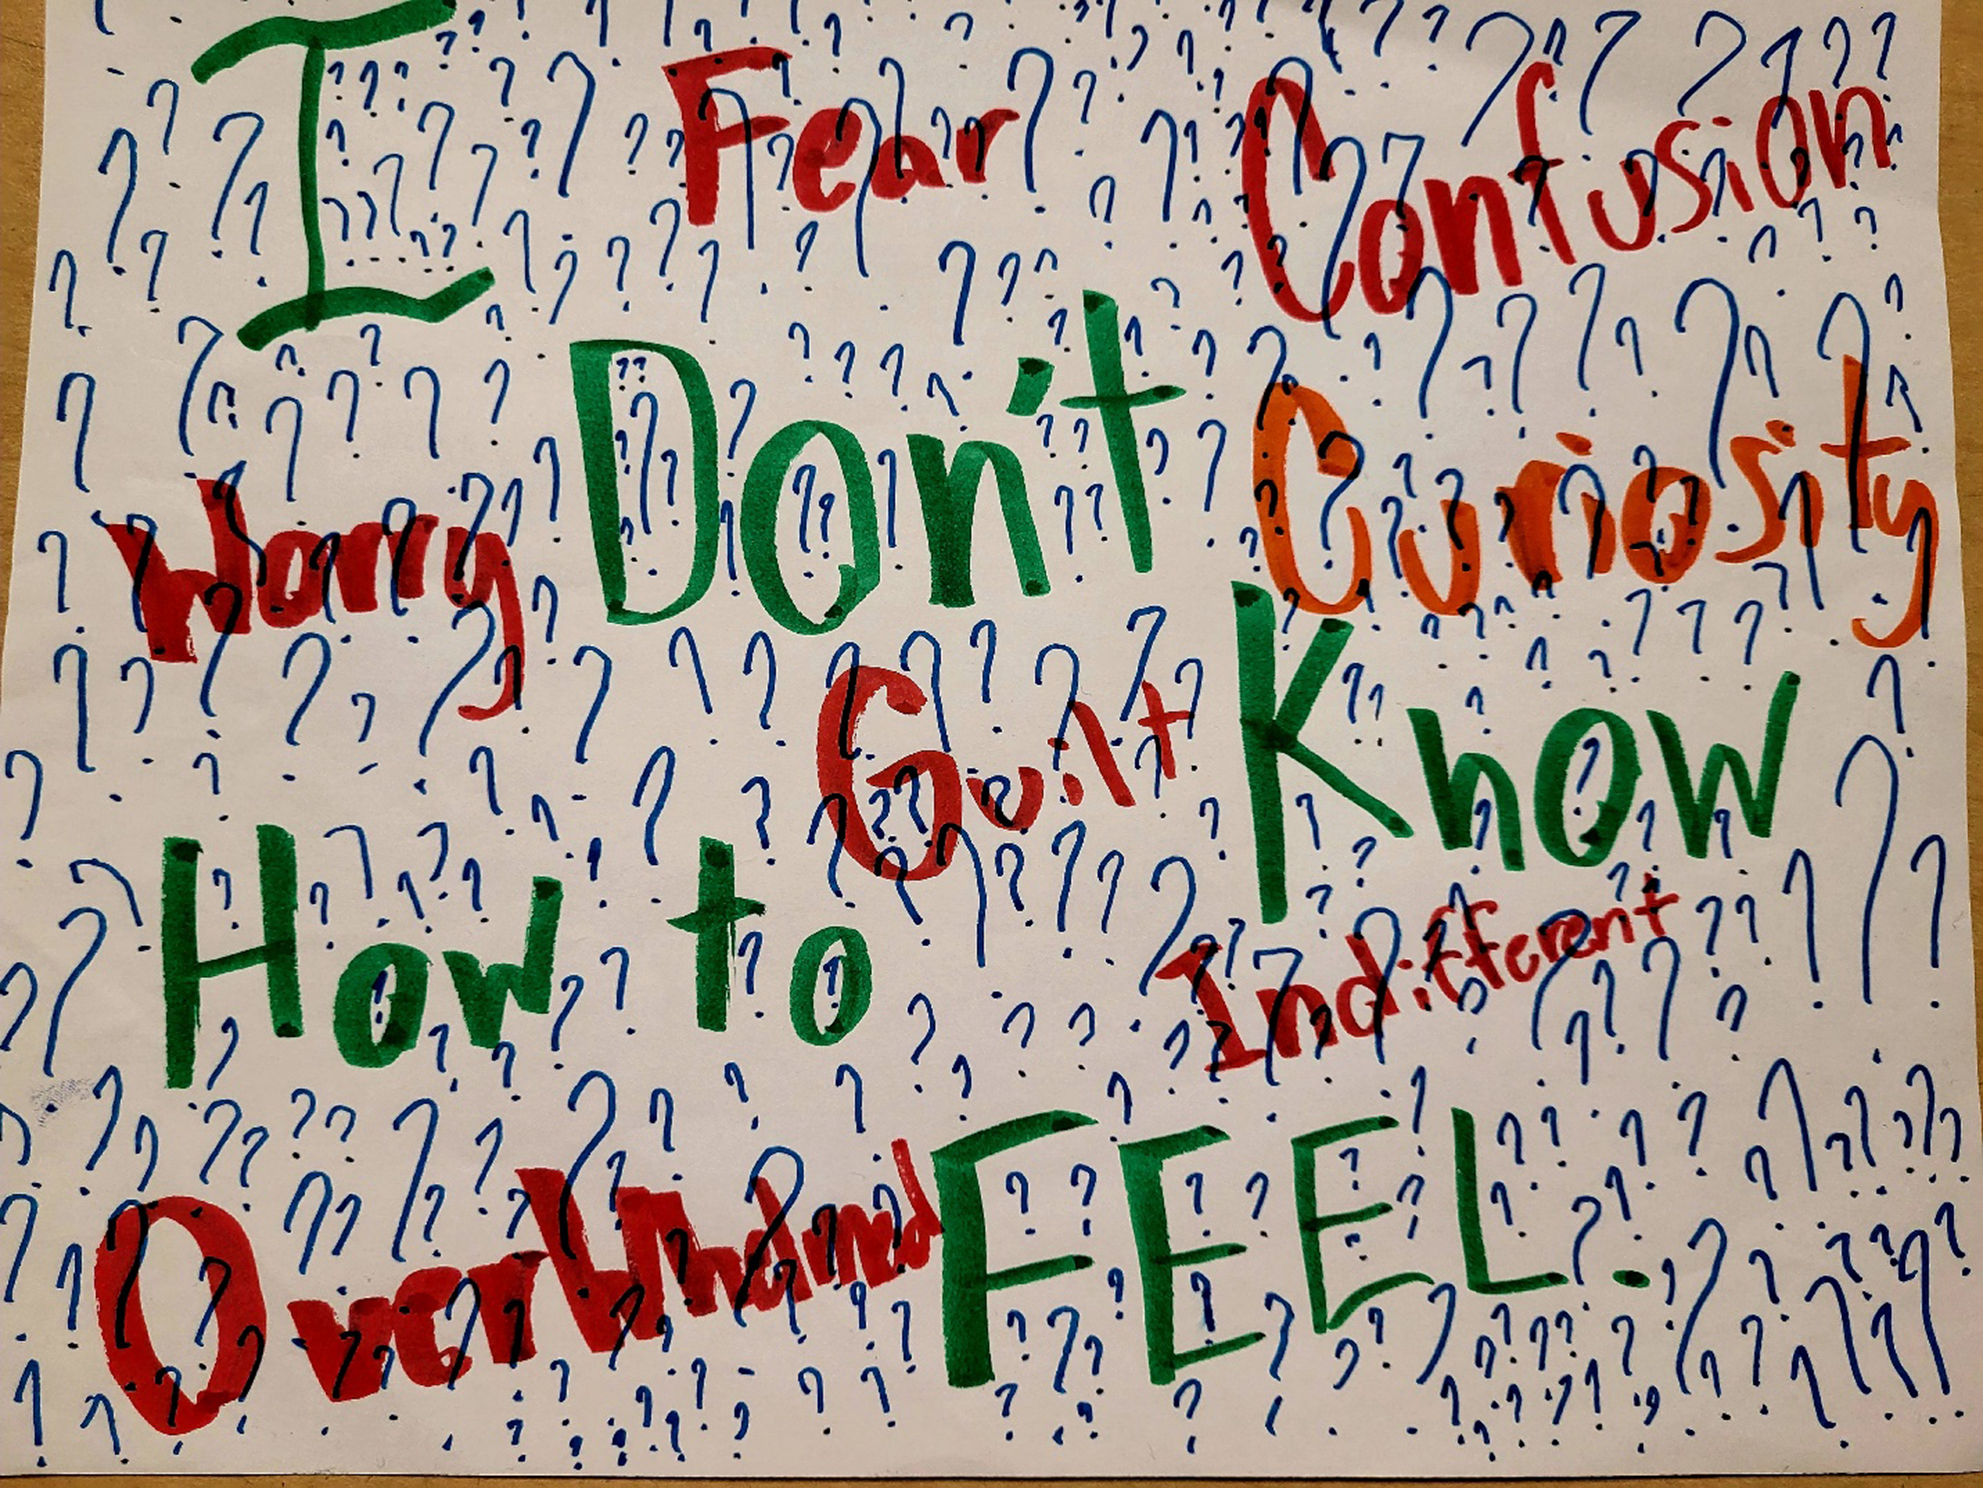 I Fear Confusion
Don't Curiosity
Worry
Guilt Know
How to
Indifferent
OverWhelmed FEEL.